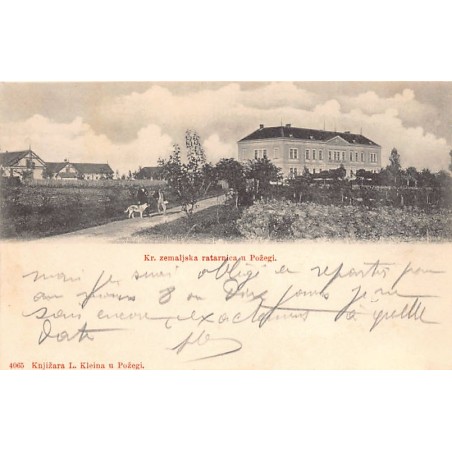 Kr. zemaljska ratarnica u Požegi.
mais je suis obligé de repartir pour
au moins 8 ou Dix jours je ne
sais encore exactement à quelle
date
4065 Knjižara L. Kleina u Požegi.